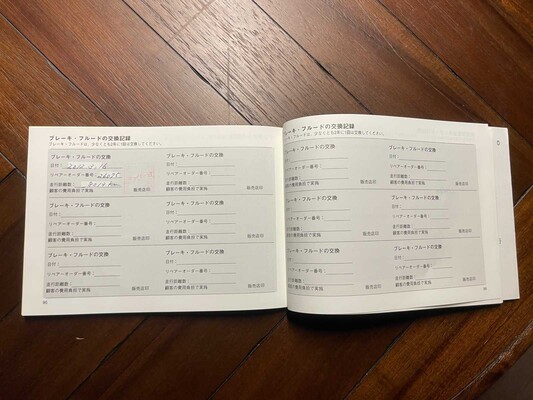 ブレーキ・フルードの交換記録
ブレーキ・フルードは、少なくとも2年に1回は交換してください。
ブレーキ・フルードの交換
日付：2012.5.16
リペアーオーダー番号：
走行距離数：
顧客の費用負担で実施
販売店印
ブレーキ・フルードの交換
日付：
リペアーオーダー番号：
走行距離数：
顧客の費用負担で実施
販売店印
ブレーキ・フルードの交換
日付：
リペアーオーダー番号：
走行距離数：
顧客の費用負担で実施
販売店印
ブレーキ・フルードの交換
日付：
リペアーオーダー番号：
走行距離数：
顧客の費用負担で実施
販売店印
ブレーキ・フルードの交換
日付：
リペアーオーダー番号：
走行距離数：
顧客の費用負担で実施
販売店印
ブレーキ・フルードの交換
日付：
リペアーオーダー番号：
走行距離数：
顧客の費用負担で実施
販売店印
ブレーキ・フルードの交換記録
ブレーキ・フルードは、少なくとも2年に1回は交換してください。
ブレーキ・フルードの交換
日付：
リペアーオーダー番号：
走行距離数：
顧客の費用負担で実施
販売店印
ブレーキ・フルードの交換
日付：
リペアーオーダー番号：
走行距離数：
顧客の費用負担で実施
販売店印
ブレーキ・フルードの交換
日付：
リペアーオーダー番号：
走行距離数：
顧客の費用負担で実施
販売店印
ブレーキ・フルードの交換
日付：
リペアーオーダー番号：
走行距離数：
顧客の費用負担で実施
販売店印
ブレーキ・フルードの交換
日付：
リペアーオーダー番号：
走行距離数：
顧客の費用負担で実施
販売店印
ブレーキ・フルードの交換
日付：
リペアーオーダー番号：
走行距離数：
顧客の費用負担で実施
販売店印